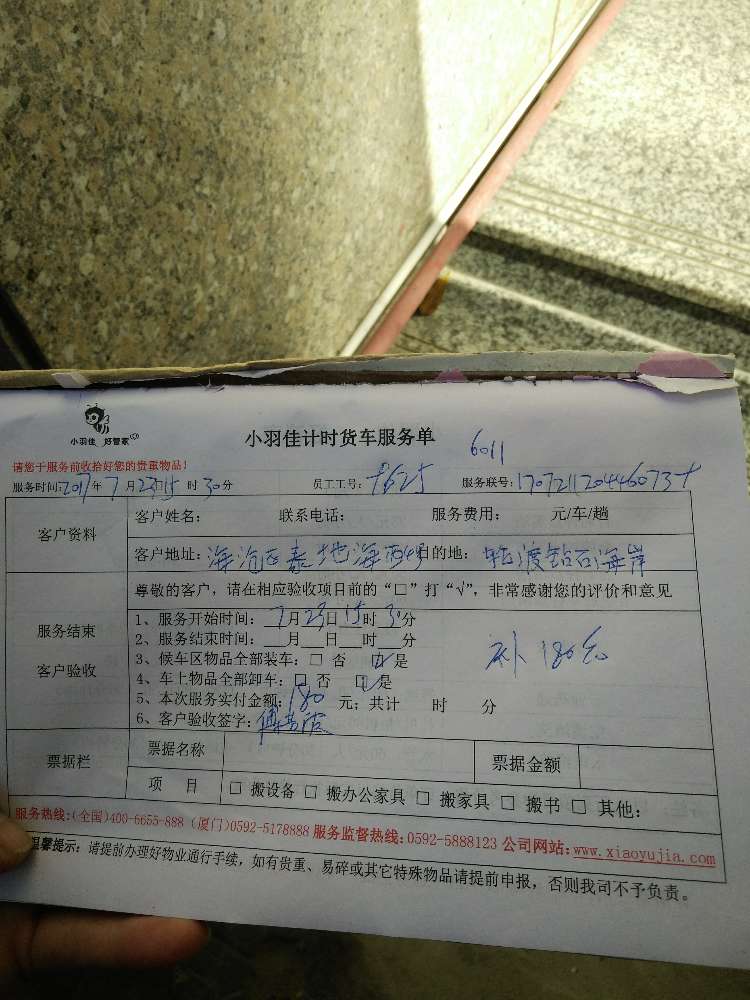 小羽佳 好管家
小羽佳计时货车服务单
6011
请您于服务前收拾好您的贵重物品!
服务时间:2017年7月23日15时30分 员工工号: 服务联号:
客户资料
客户姓名: 联系电话: 服务费用: 元/车/趟
客户地址:海沧正泰地海西 目的地: 渡钻石海岸
服务结束
客户验收
尊敬的客户，请在相应验收项目前的“□”打“√”，非常感谢您的评价和意见
1、服务开始时间: 7月23日15时30分
2、服务结束时间: 月 日 时 分
3、候车区物品全部装车: □ 否 ☑是
4、车上物品全部卸车: □ 否 ☑是
5、本次服务实付金额: 180 元; 共计 时 分
6、客户验收签字:
补180元
票据栏
票据名称 票据金额
项 目 □ 搬设备 □ 搬办公家具 □ 搬家具 □ 搬书 □ 其他:
服务热线:(全国)400-6655-888 (厦门)0592-5178888 服务监督热线:0592-5888123 公司网站:www.xiaoyujia.com
温馨提示: 请提前办理好物业通行手续，如有贵重、易碎或其它特殊物品请提前申报，否则我司不予负责。